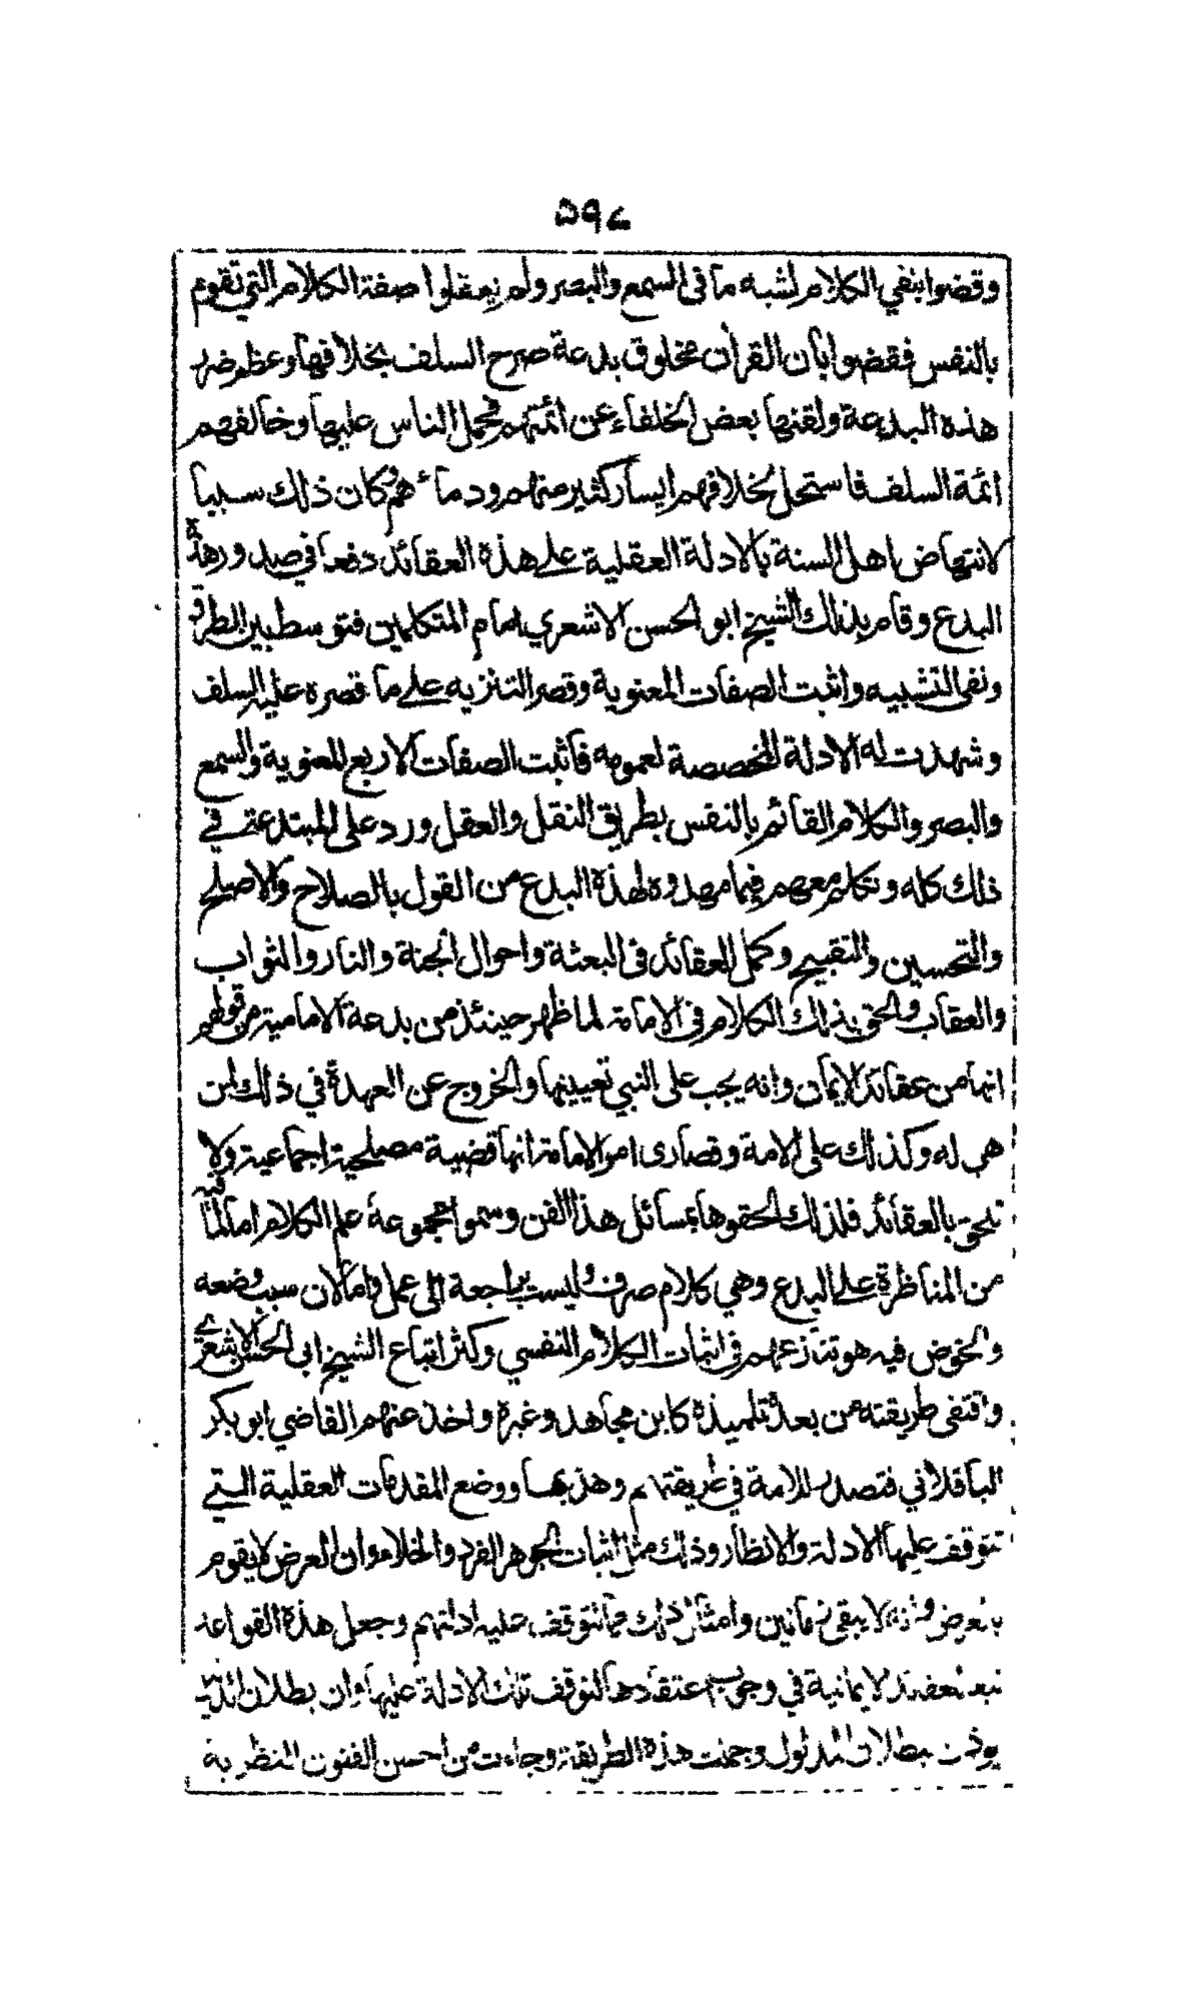 ٥٩٧
وقضوا بنفي الكلام لشبه ما في السمع والبصر ولم يعقلوا صفة الكلام التي تقوم
بالنفس فقضوا بان القرآن مخلوق بدعة صرح السلف بخلافها وعظم ضرر
هذه البدعة ولقنها بعض الخلفاء عن ائمتهم فحمل الناس عليها وخالفهم
ائمة السلف فاستحل بخلافهم ايسار كثير منهم ودماءهم وكان ذلك سببا
لانتهاض اهل السنة بالادلة العقلية على هذه العقائد دفعا في صدور هذه
البدع وقام بذلك الشيخ ابو الحسن الاشعري امام المتكلمين فتوسط بين الطرق
ونفى التشبيه واثبت الصفات المعنوية وقصر التنزيه على ما قصره عليه السلف
وشهدت له الادلة المخصصة لعمومه فاثبت الصفات الاربع المعنوية والسمع
والبصر والكلام القائم بالنفس بطريق النقل والعقل ورد على المبتدعة في
ذلك كله وتكلم معهم فيما مهدوه لهذه البدع من القول بالصلاح والاصلح
والتحسين والتقبيح وكمل العقائد في البعثة واحوال الجنة والنار والثواب
والعقاب والحق بذلك الكلام في الامامة لما ظهر حينئذ من بدعة الامامية من قولهم
انها من عقائد الايمان وانه يجب على النبي تعيينها والخروج عن العهدة في ذلك لمن
هي له وكذلك على الامة وقصارى امر الامامة انها قضية مصلحية اجماعية ولا
تلحق بالعقائد فلذلك الحقوها بمسائل هذا الفن وسموا مجموعة علم الكلام اما لما فيه
من المناظرة على البدع وهي كلام صرف وليست براجعة الى عمل واما لان سبب وضعه
والخوض فيه هو تنازعهم في اثبات الكلام النفسي وكثر اتباع الشيخ ابى الحسن الاشعري
واقتفى طريقته من بعده تلميذه كابن مجاهد وغيره واخذ عنهم القاضي ابو بكر
الباقلاني فتصدر للامامة في طريقتهم وهذبها ووضع المقدمات العقلية التي
تتوقف عليها الادلة والانظار وذلك مثل اثبات الجوهر الفرد والخلاء وان العرض لا يقوم
بالعرض وانه لا يبقى زمانين وامثال ذلك مما تتوقف عليه ادلتهم وجعل هذه القواعد
تبعا للعقائد الايمانية في وجوب اعتقادها لتوقف تلك الادلة عليها وان بطلان الدليل
يوذن ببطلان المدلول وجملت هذه الطريقة وجاءت من احسن الفنون النظرية